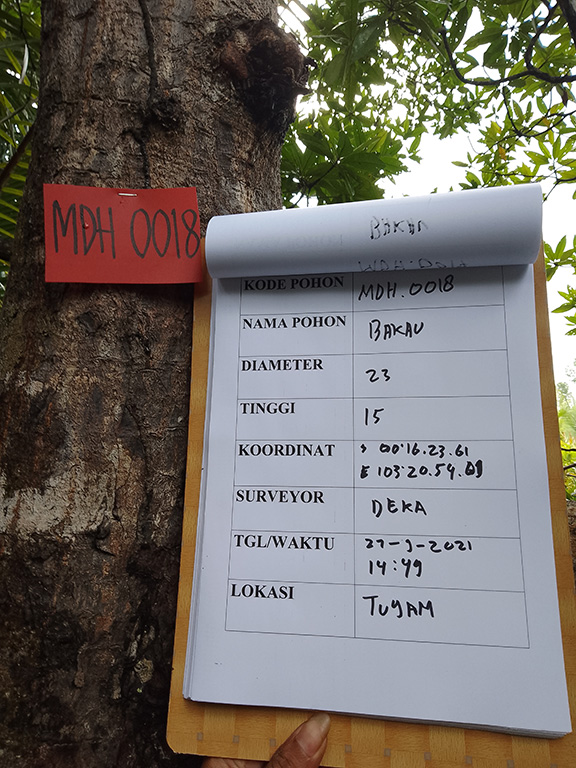 MDH 0018
BAKAU
KODE POHON MDH.0018
NAMA POHON BAKAU
DIAMETER 23
TINGGI 15
KOORDINAT S 00°16.23.61
E 103.20.54.
SURVEYOR DEKA
TGL/WAKTU 27-9-2021
14:49
LOKASI TUYAM